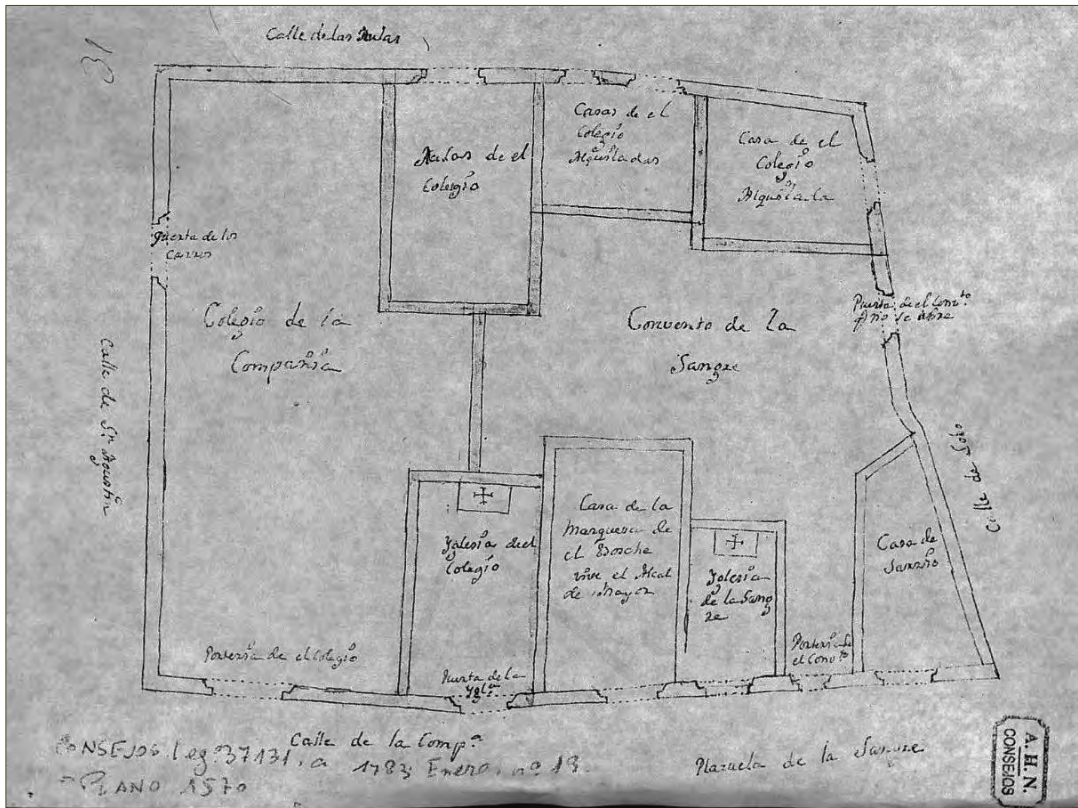 31
Calle de las Aulas
Aulas de el
Colegio
Casas de el
Colegio
Alquiladas
Casa de el
Colegio
Alquilada
Puerta de los
Carros
Colegio de la
Compañia
Convento de la
Sangre
Puerta de el Conv.to
q.e no se abre
Calle de S.n Agustin
Calle de Toro
Yglesia de el
Colegio
Casa de la
Marquesa de
el Bosche
vive el Alcal
de Mayor
Yglesia
de la Sang
re
Casa de
Porteria de el Colegio
Puerta de la
Ygl.a
Porteria de
el Conv.to
Calle de la Comp.a
Plazuela de la Sangre
CONSEJOS, leg.o 37131, a 1783 Enero, n.o 18
PLANO 1570
A. H. N.
CONSEJOS